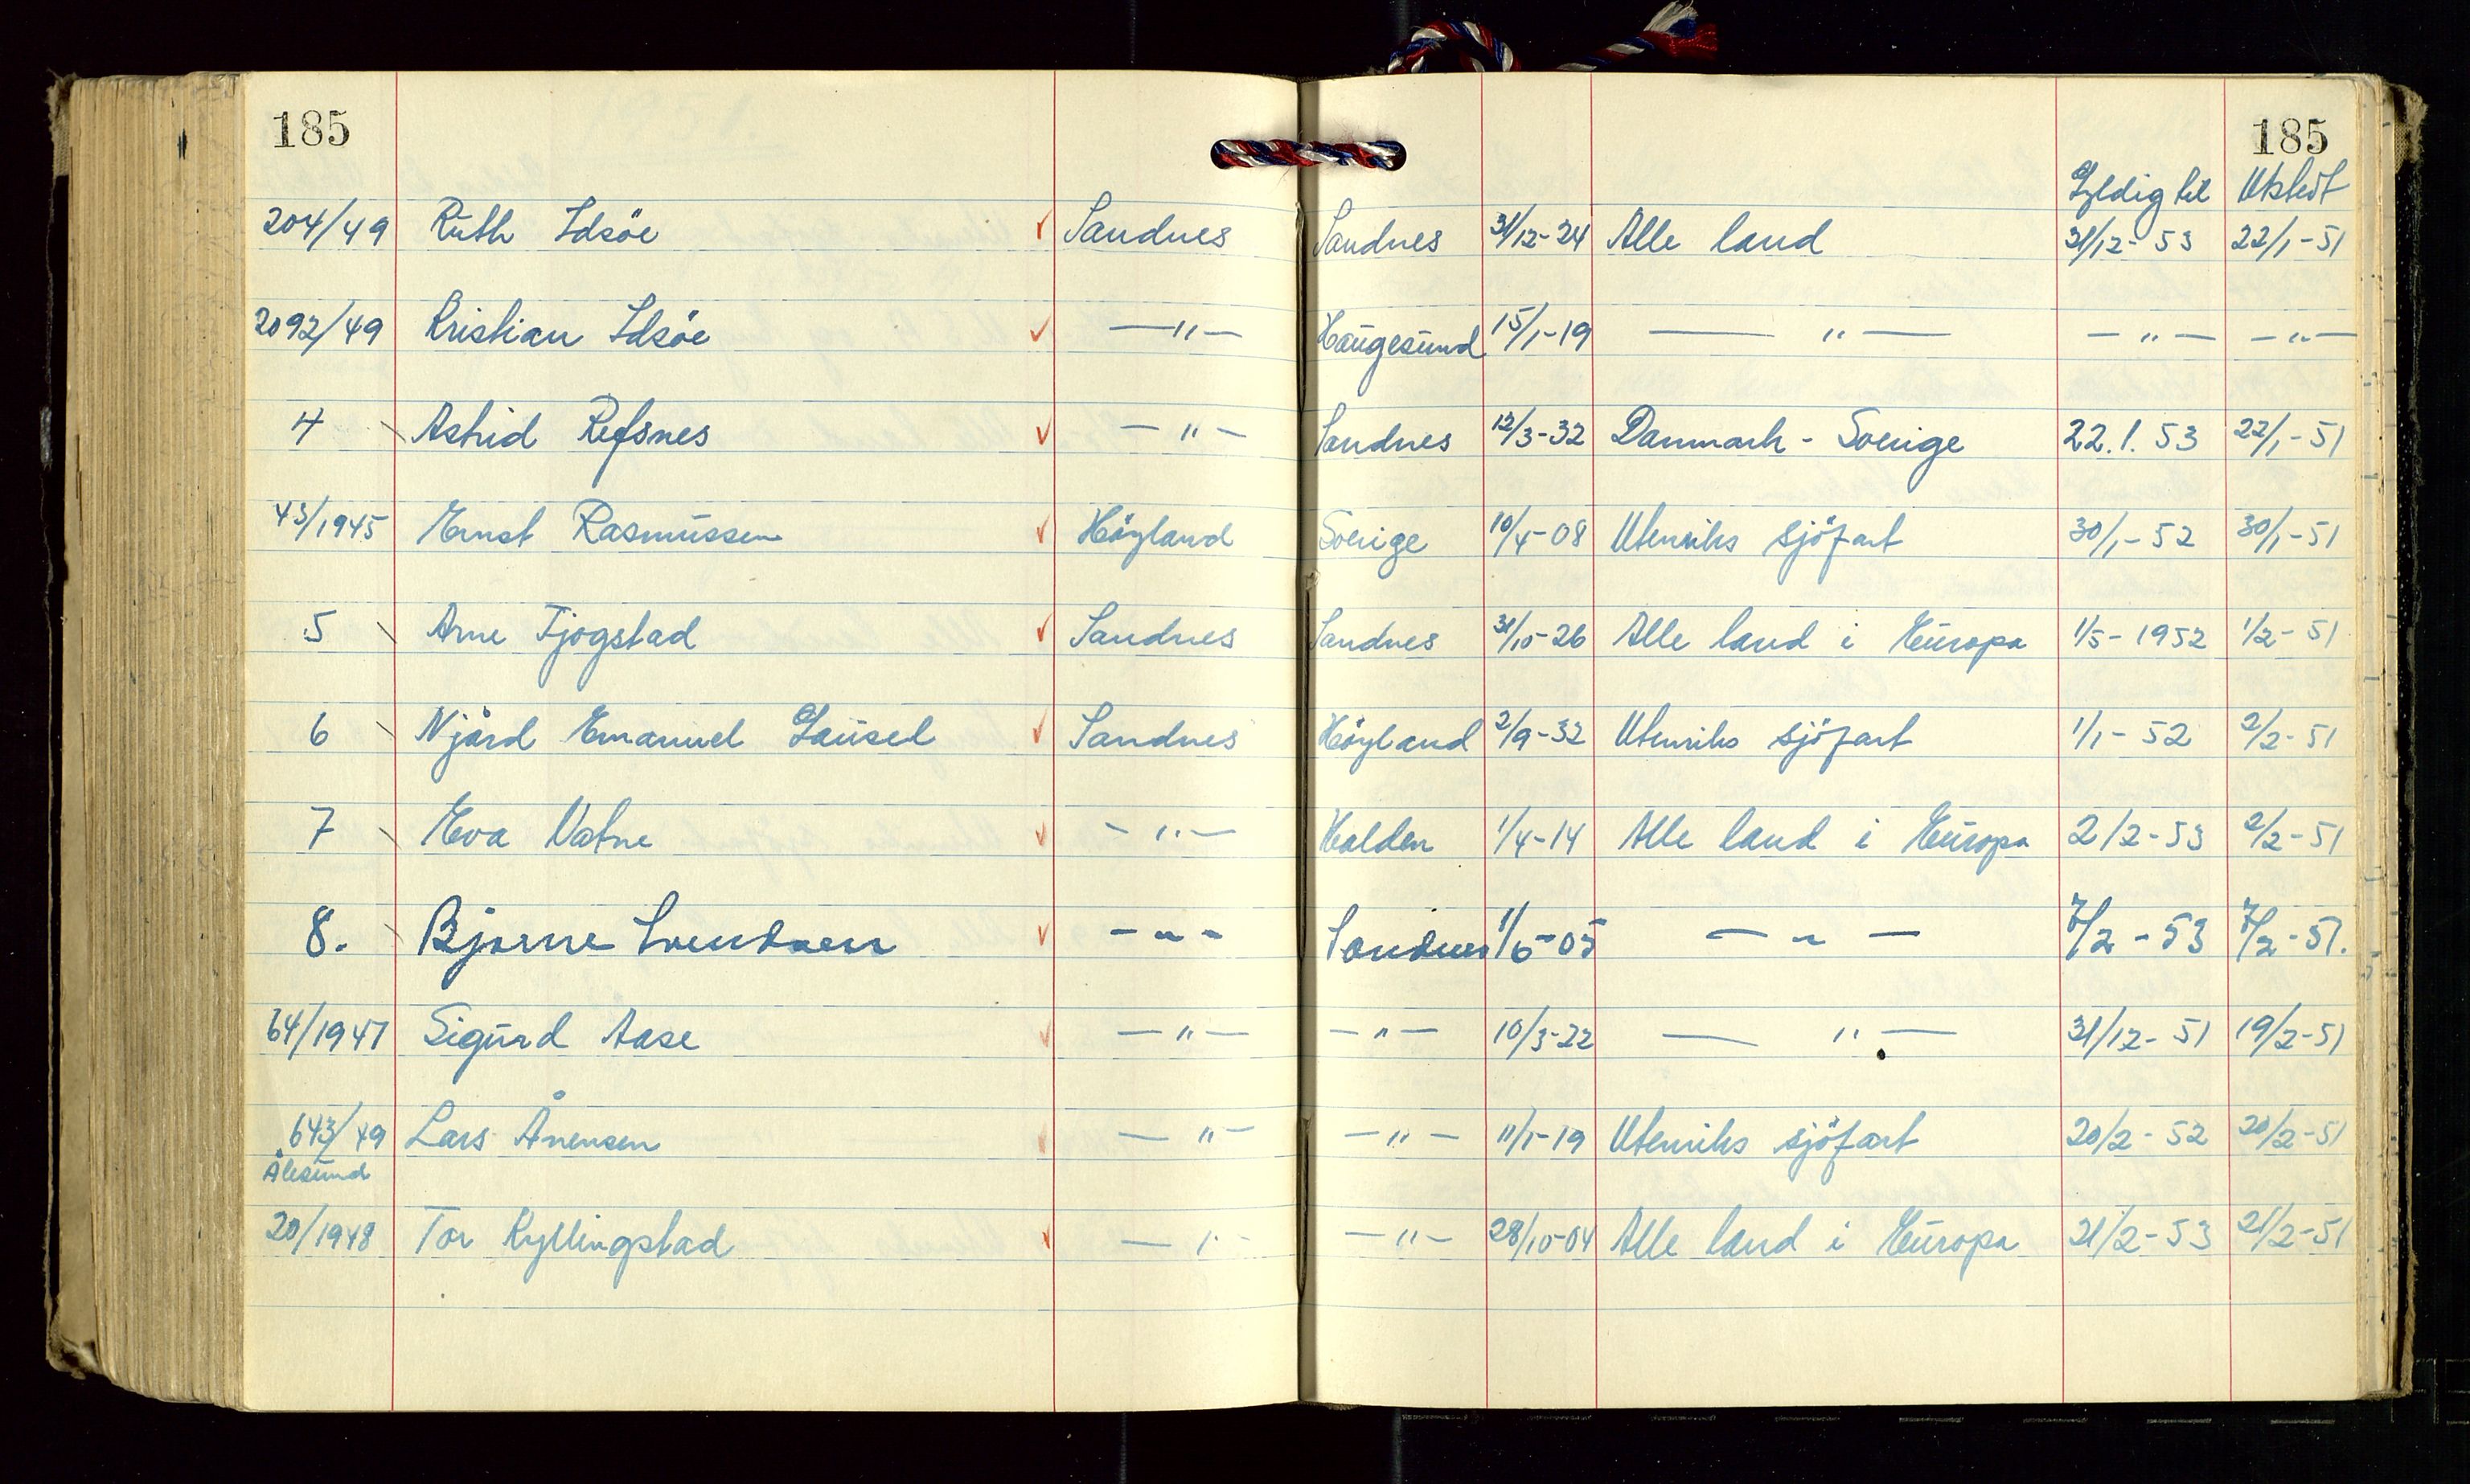 185 185
Gyldig til Utstedt
204/49 Ruth Idsöe ✓ Sandnes Sandnes 31/12-24 Alle land 31/12-53 22/1-51
2092/49 Kristian Idsöe ✓ —"— Haugesund 15/1-19 —"— —"— —"—
4 Astrid Refsnes ✓ —"— Sandnes 12/3-32 Danmark - Sverige 22.1.53 22/1-51
43/1945 Ernst Rasmussen ✓ Höyland Sverige 10/4-08 Utenriks sjöfart 30/1-52 30/1-51
5 Arne Tjogstad ✓ Sandnes Sandnes 31/10-26 Alle land i Europa 1/5-1952 1/2-51
6 Njård Emanuel Gausel ✓ Sandnes Höyland 2/9-32 Utenriks sjöfart 1/1-52 2/2-51
7 Eva Vatne ✓ —"— Halden 1/4-14 Alle land i Europa 2/2-53 2/2-51
8. Bjarne Svendsen ✓ —"— Sandnes 1/6-05 —"— 7/2-53 7/2-51.
64/1947 Sigurd Aase ✓ —"— —"— 10/3-22 —"— 31/12-51 19/2-51
643/49 Lars Ånensen ✓ —"— —"— 11/1-19 Utenriks sjöfart 20/2-52 20/2-51
Ålesund
20/1948 Tor Kyllingstad ✓ —"— —"— 28/10-04 Alle land i Europa 21/2-53 21/2-51